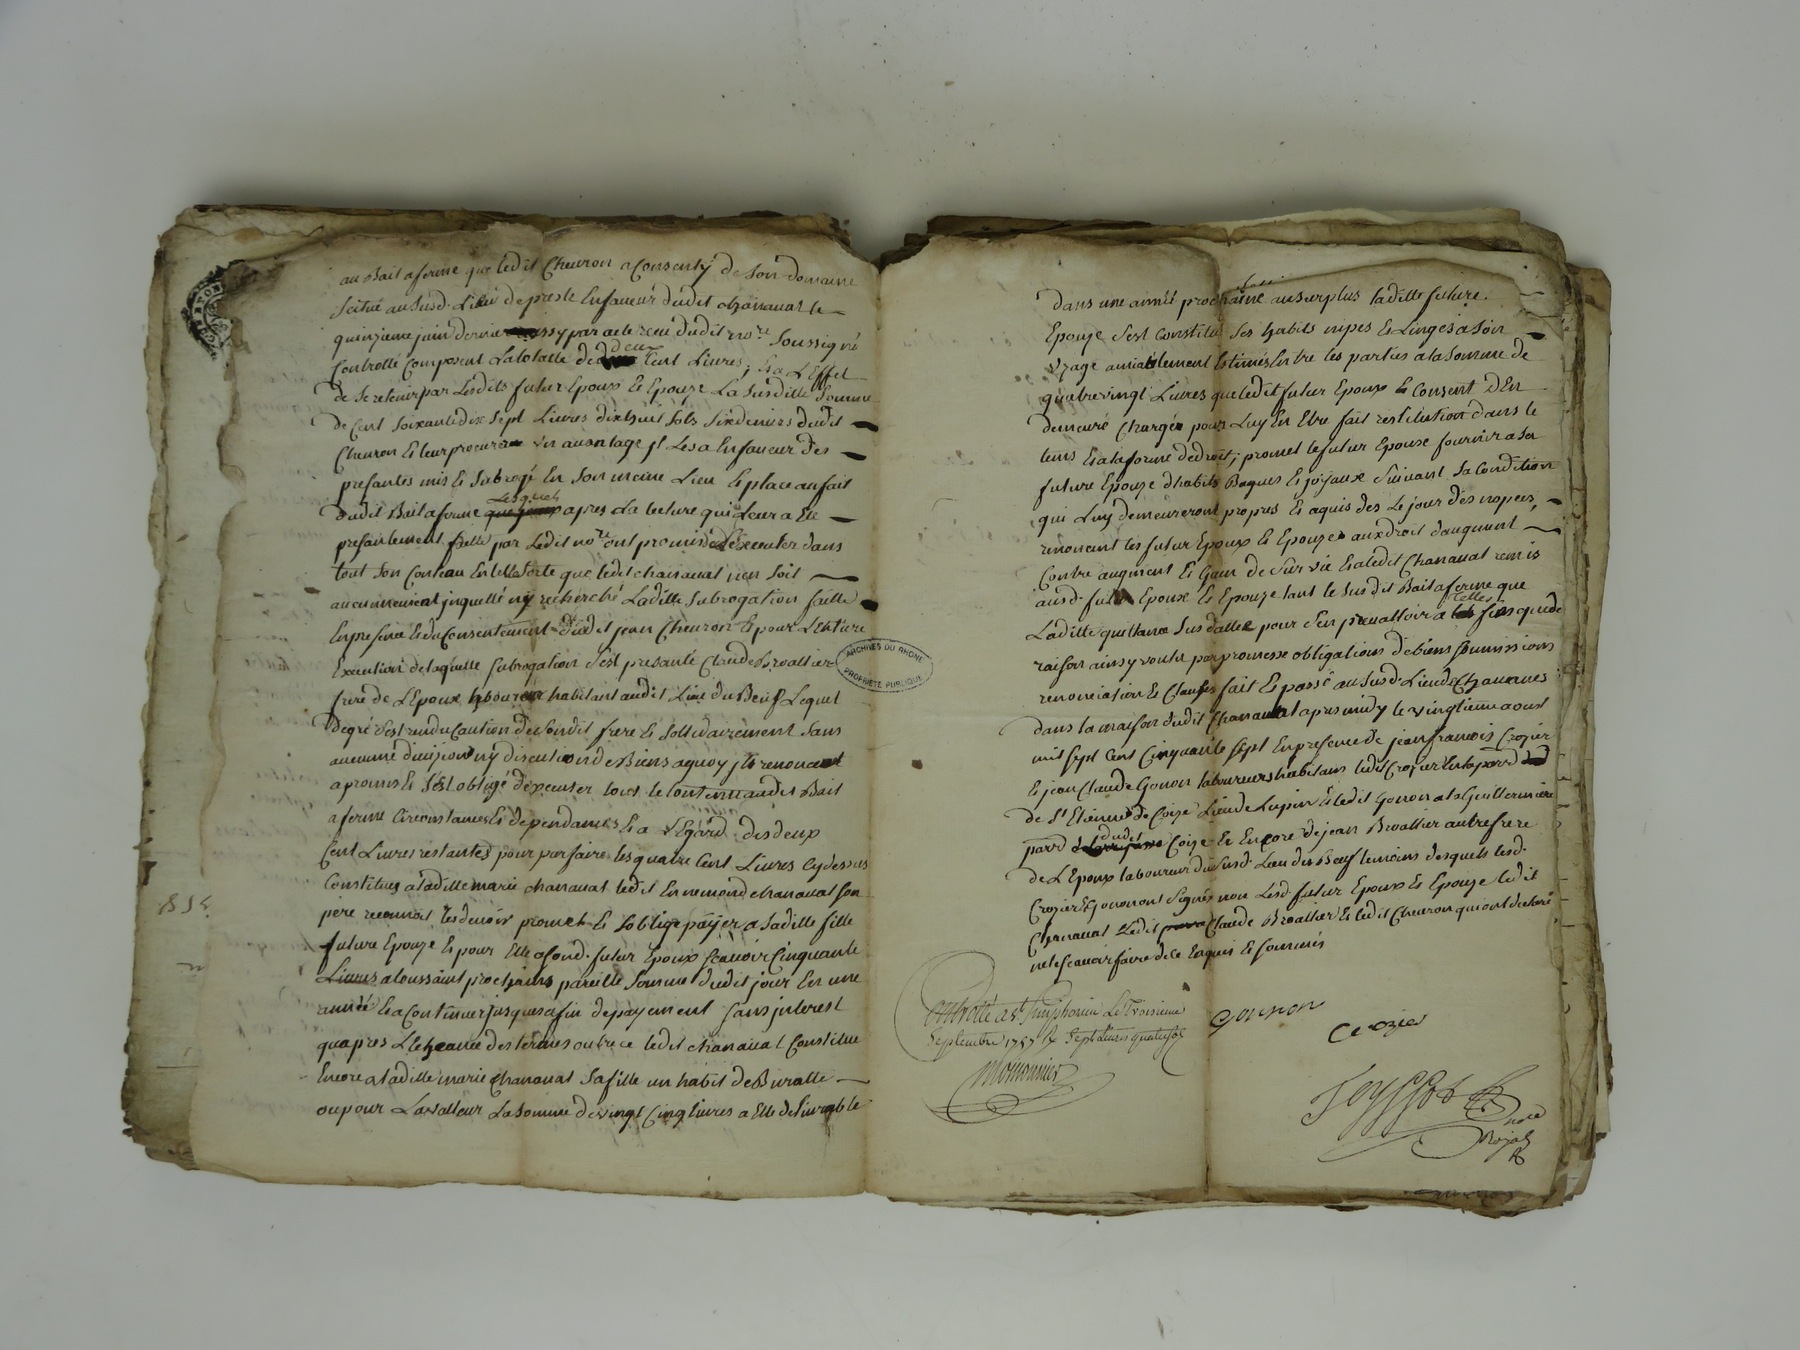 au Bail a ferme que ledit Cheuron a Consenty de Son domaine
Scitué au Susd. Lieu de presle En faueur dudit chanauat le
quinzieme juin dernier passy par acte receu dudit no.re Soussigné
Controllé Composent La totalle de deux Cent Liures, Et a L'Effet
de Se retenir par Lesdits futur Epoux Et Epouze La Susditte Somme
de Cent Soixante dix Sept Liures dixhuit Sols Six deniers dudit
Cheuron Et leur procurer un auantage jl Les a En faueur des
presantes mis Et Subrogé En Son meme Lieu Et place au fait
dudit Bail a ferme Lesquels apres La lecture qui Leur a Eté
presairement faitte par Ledit no.re ont promis de L'executer dans
tout Son Conteau En telle Sorte que ledit chanauat n'en Soit
aucunnement jnquetté ny recherché Laditte Subrogation faitte
En presence Et du Consentement dudit jean Cheuron Et pour L'Entiere
Execution de laquelle Subrogation s'est presanté Claude Broallier
frere de L'Epoux laboureur habitant audit Lieu du Beuf Lequel
de gré s'est rendu Caution de Sondit frere Et Sollidairement Sans
aucunne diuision ny discution de Biens a quoy jls renoncent
a promis Et S'est obligé d'executer tout le Contennu audit Bail
a ferme Circonstances Et dependances Et a L'Egard des deux
Cent Liures restantes pour parfaire les quatre Cent Liures cy dessus
Constitues a laditte marie chanauat ledit Ennemond chanauat Son
pere reconnoit les deuoir promet Et S'oblige payer a Saditte fille
future Epouze Et pour Elle asond. futur Epoux Scauoir Cinquante
Liures a toussaint prochains pareille Somme dudit jour En une
année Et a Continuer jusques a fin de payement Sans jnterest
qu'apres L'Echeance des termes outre ce ledit chanauat Constitue
Encore a laditte marie Chanauat Sa fille un habit de Buratte
ou pour La Valleur La Somme de vingt Cinq liures a Elle deliurable
dans une année prochaine au surplus laditte future
Epouze s'est Constitué Ses habits nipes Et Linges a Son
Vzage amiablement Estimés Entre les parties a la Somme de
quatre vingt Liures que ledit futur Epoux Consent d'En
demeuré Chargés pour Luy En Etre fait restitution dans le
tems Et a la forme de droit; promet le futur Epoux fournir a Sa
future Epouze d'habits Bagues Et joyaux Suiuant Sa Condition
qui Luy demeureront propres Et aquis des Le jour des nopces,
renoncent les futur Epoux Et Epouze aux droit d'augment
Contre augment Et Gain de Suruie Et a ledit Chanauat remis
aus d. futur Epoux Et Epouze tant le Susdit Bail a ferme que
Laditte quittance Susdattée pour S'en preualloir a telles fins que de
raison ainsy voulu par promesse obligations de biens Soumissions
renonciation Et Clauses fait Et passé au Susd. Lieu de Chauanes
dans la maison dudit Chanauat apres midy le vingtieme aoust
mil Sept Cent Cinquante Sept En presence de jean francois Crozier
Et jean Claude Gonon laboureurs habitans ledit Crozier
de St Etienne de Coize Lieu de Lupin Et ledit Gonon a la Guillermiere
parr. dudit Coize Et Encore de jean Broallier autre frere
de L'Epoux laboureur du Susd. Lieu du Beuf temoins desquels lesd.
Crozier Et Gonon ont Signés non Lesd. futur Epoux Et Epouze ledit
Chanauat Ledit Claude Broallier Et ledit Cheuron qui ont declaré
ne le Scauoir faire de Ce Enquis Et Sommés
Controllé a St Simphorien Le Troisieme
Septembre 1757 Sept Liures quatre sols
Gounon
Crozier
no.re
Royal
ARCHIVES DU RHONE
PROPRIÉTÉ PUBLIQUE